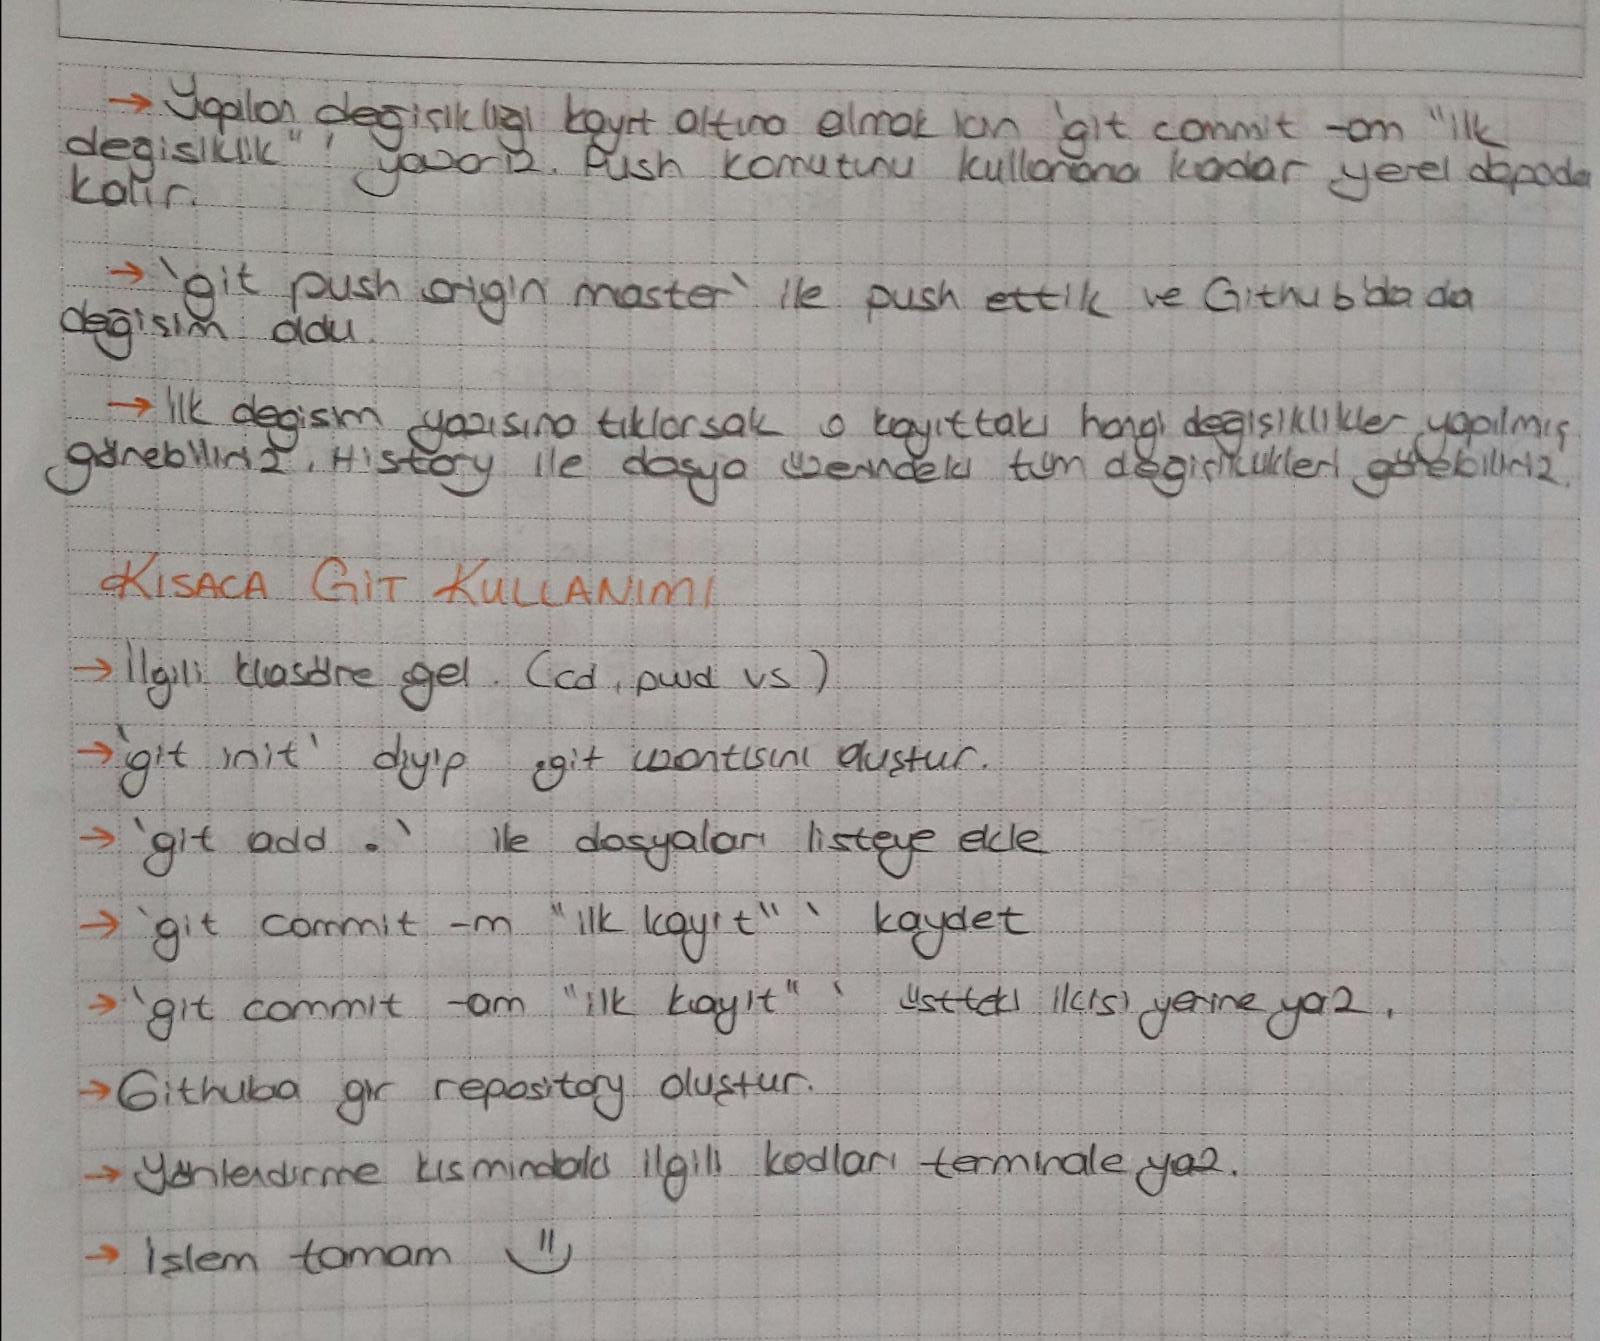 → Yapılan değişikliği kayıt altına almak için 'git commit -am "ilk
değişiklik"' yazarız. Push komutunu kullanana kadar yerel depoda
kalır.
→ 'git push origin master' ile push ettik ve Github'da da
değişim oldu.
→ İlk değişim yazısına tıklarsak o kayıttaki hangi değişiklikler yapılmış
görebiliriz. History ile dosya üzerindeki tüm değişiklikleri görebiliriz.
KISACA GİT KULLANIMI
→ İlgili klasöre gel. (cd, pwd vs)
→ 'git init' diyip .git uzantısını oluştur.
→ 'git add .' ile dosyaları listeye ekle
→ 'git commit -m "ilk kayıt"' kaydet
→ 'git commit -am "ilk kayıt"' üstteki ikisi yerine yaz.
→ Githuba gir repository oluştur.
→ Yönlendirme kısmındaki ilgili kodları terminale yaz.
→ İşlem tamam